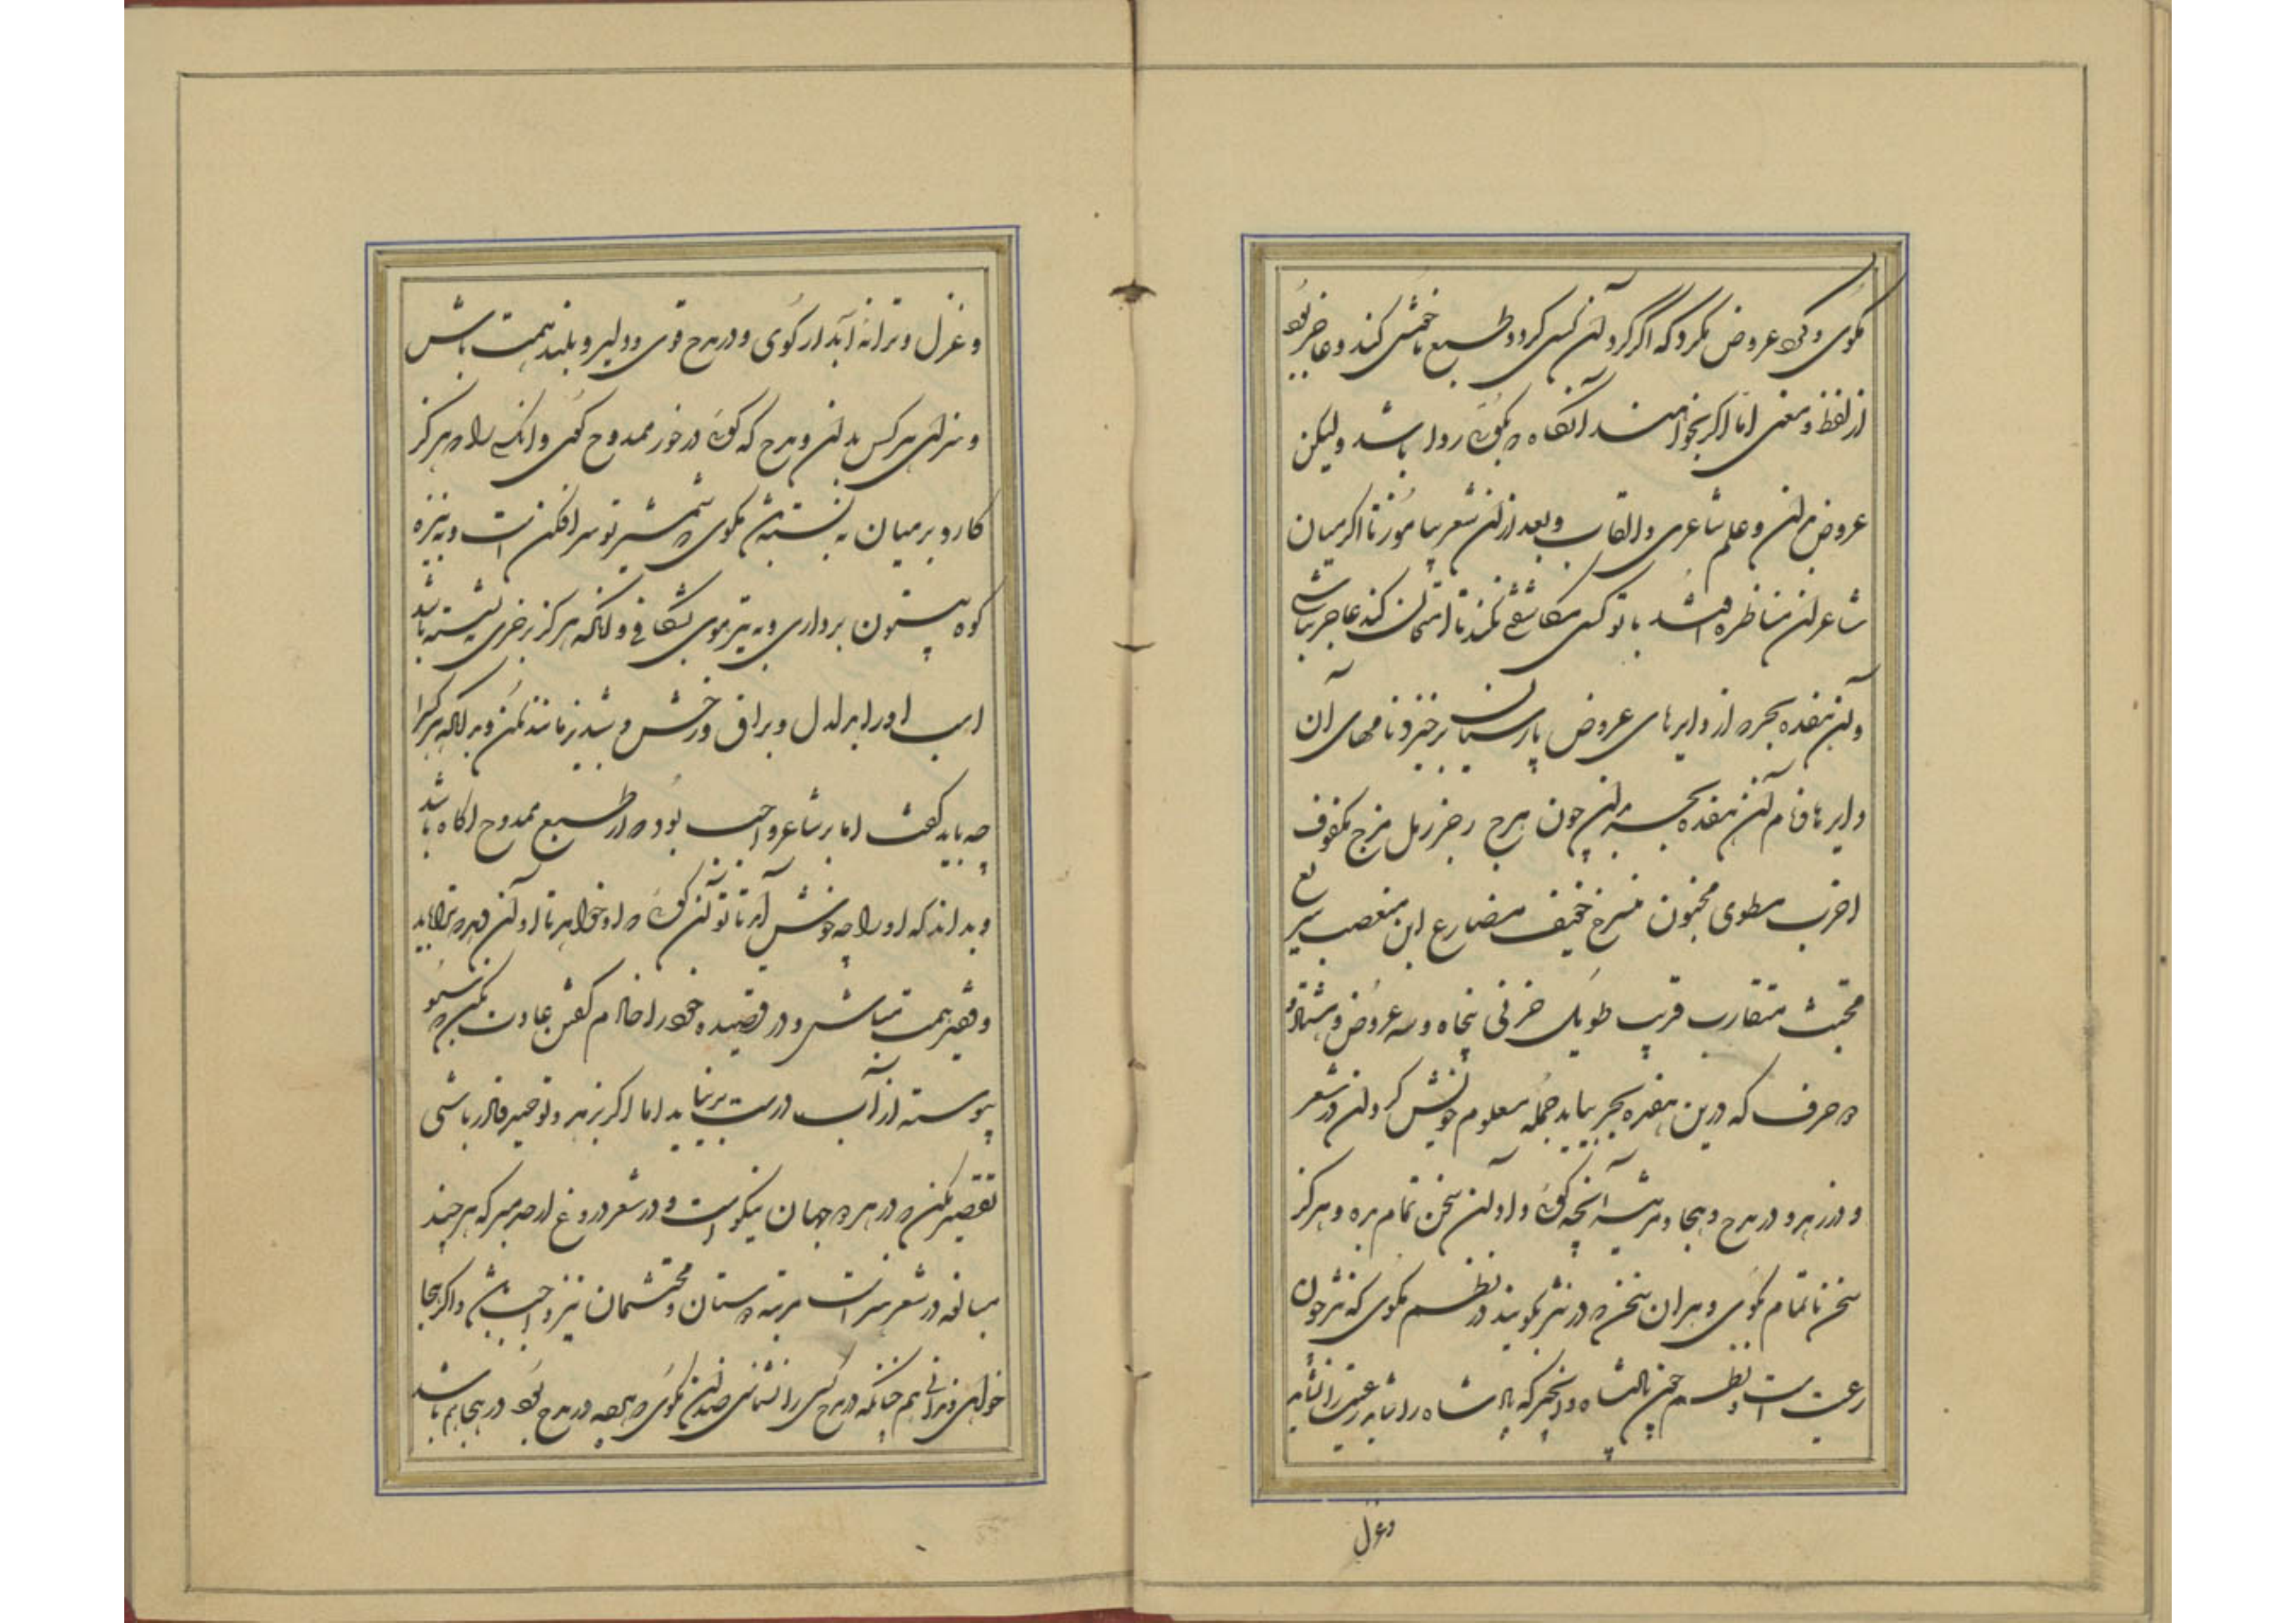 مگوی و گرد عروض مگرد که اگر گرد آن کسی گردد طبع ناخوش کند و عاجز بود
از لفظ و معنی اما اکر بخواهند آنگاه که بگوئی روا باشد ولیکن
عروض بدان و علم شاعری و القاب و بعد ازان شعر بیاموز تا اکر میان
شاعران مناظره افتد با تو کسی مکاشفتی نکند تا امتحان کند عاجز نباشی
و آن هفده بحر که از دایرهای عروض پارسیان برخیزد نامهای آن
دایرها و نام آن هفده بحر بدان چون هزج رجز رمل هزج مکفوف
اخرب مطوی مخبون منسرح خفیف مضارع این مقتضب سریع
مجتث متقارب قریب طویل پنجاه و سه عروض و هشتاد و
دو حرف که درین هفده بحر بیاید جمله معلوم خویش گردان در شعر
و در زهد و در مدح و هجا و مرثیه آنچه گوئی داد آن سخن تمام بده و هرگز
سخن ناتمام مگوی و هر آن سخن که در نثر نگویند در نظم مگوی که نثر چون
رعیت است و نظم چون پادشاه و آنچیز که پادشاه را نشاید رعیت را نشاید
وغزل
و غزل و ترانه آبدار گوی و در مدح قوی و دلیر و بلند همت باش
و سزای هر کس بدان و مدح که گوئی در خور ممدوح گوی و آنکسی را که هرگز
کارد بر میان نبسته باشد مگوی که شمشیر تو سر افکن است و به نیزه
کوه بیستون برداری و به تیر موی بشکافی و آنکه هرگز بر خری ننشسته باشد
اسب او را بدلدل و براق و رخش و شبدیز مانند مکن و بدانکه هر کس را
چه باید گفت اما بر شاعر واجب بود که از طبع ممدوح آگاه باشد
و بداند که او را چه خوش آید تا تو آن گوئی که او خواهد تا او آن دهد که ترا باید
و حقیر همت مباش و در قصیده خود را خادم گفتن عادت مکن که
پیوسته از آب درست برنیاید اما اکر بزهد و توحید قادر باشی
تقصیر مکن که در هر دو جهان نیکو است و در شعر دروغ از حد مبر که هر چند
مبالغه در شعر هنر است مرثیه دوستان و محتشمان نیز واجب باشد و اگر هجا
خواهی و ندانی هم چنانکه در مدح کسی را ستائی ضد آن بگوی که هر چه در مدح بود در هجا هم باشد